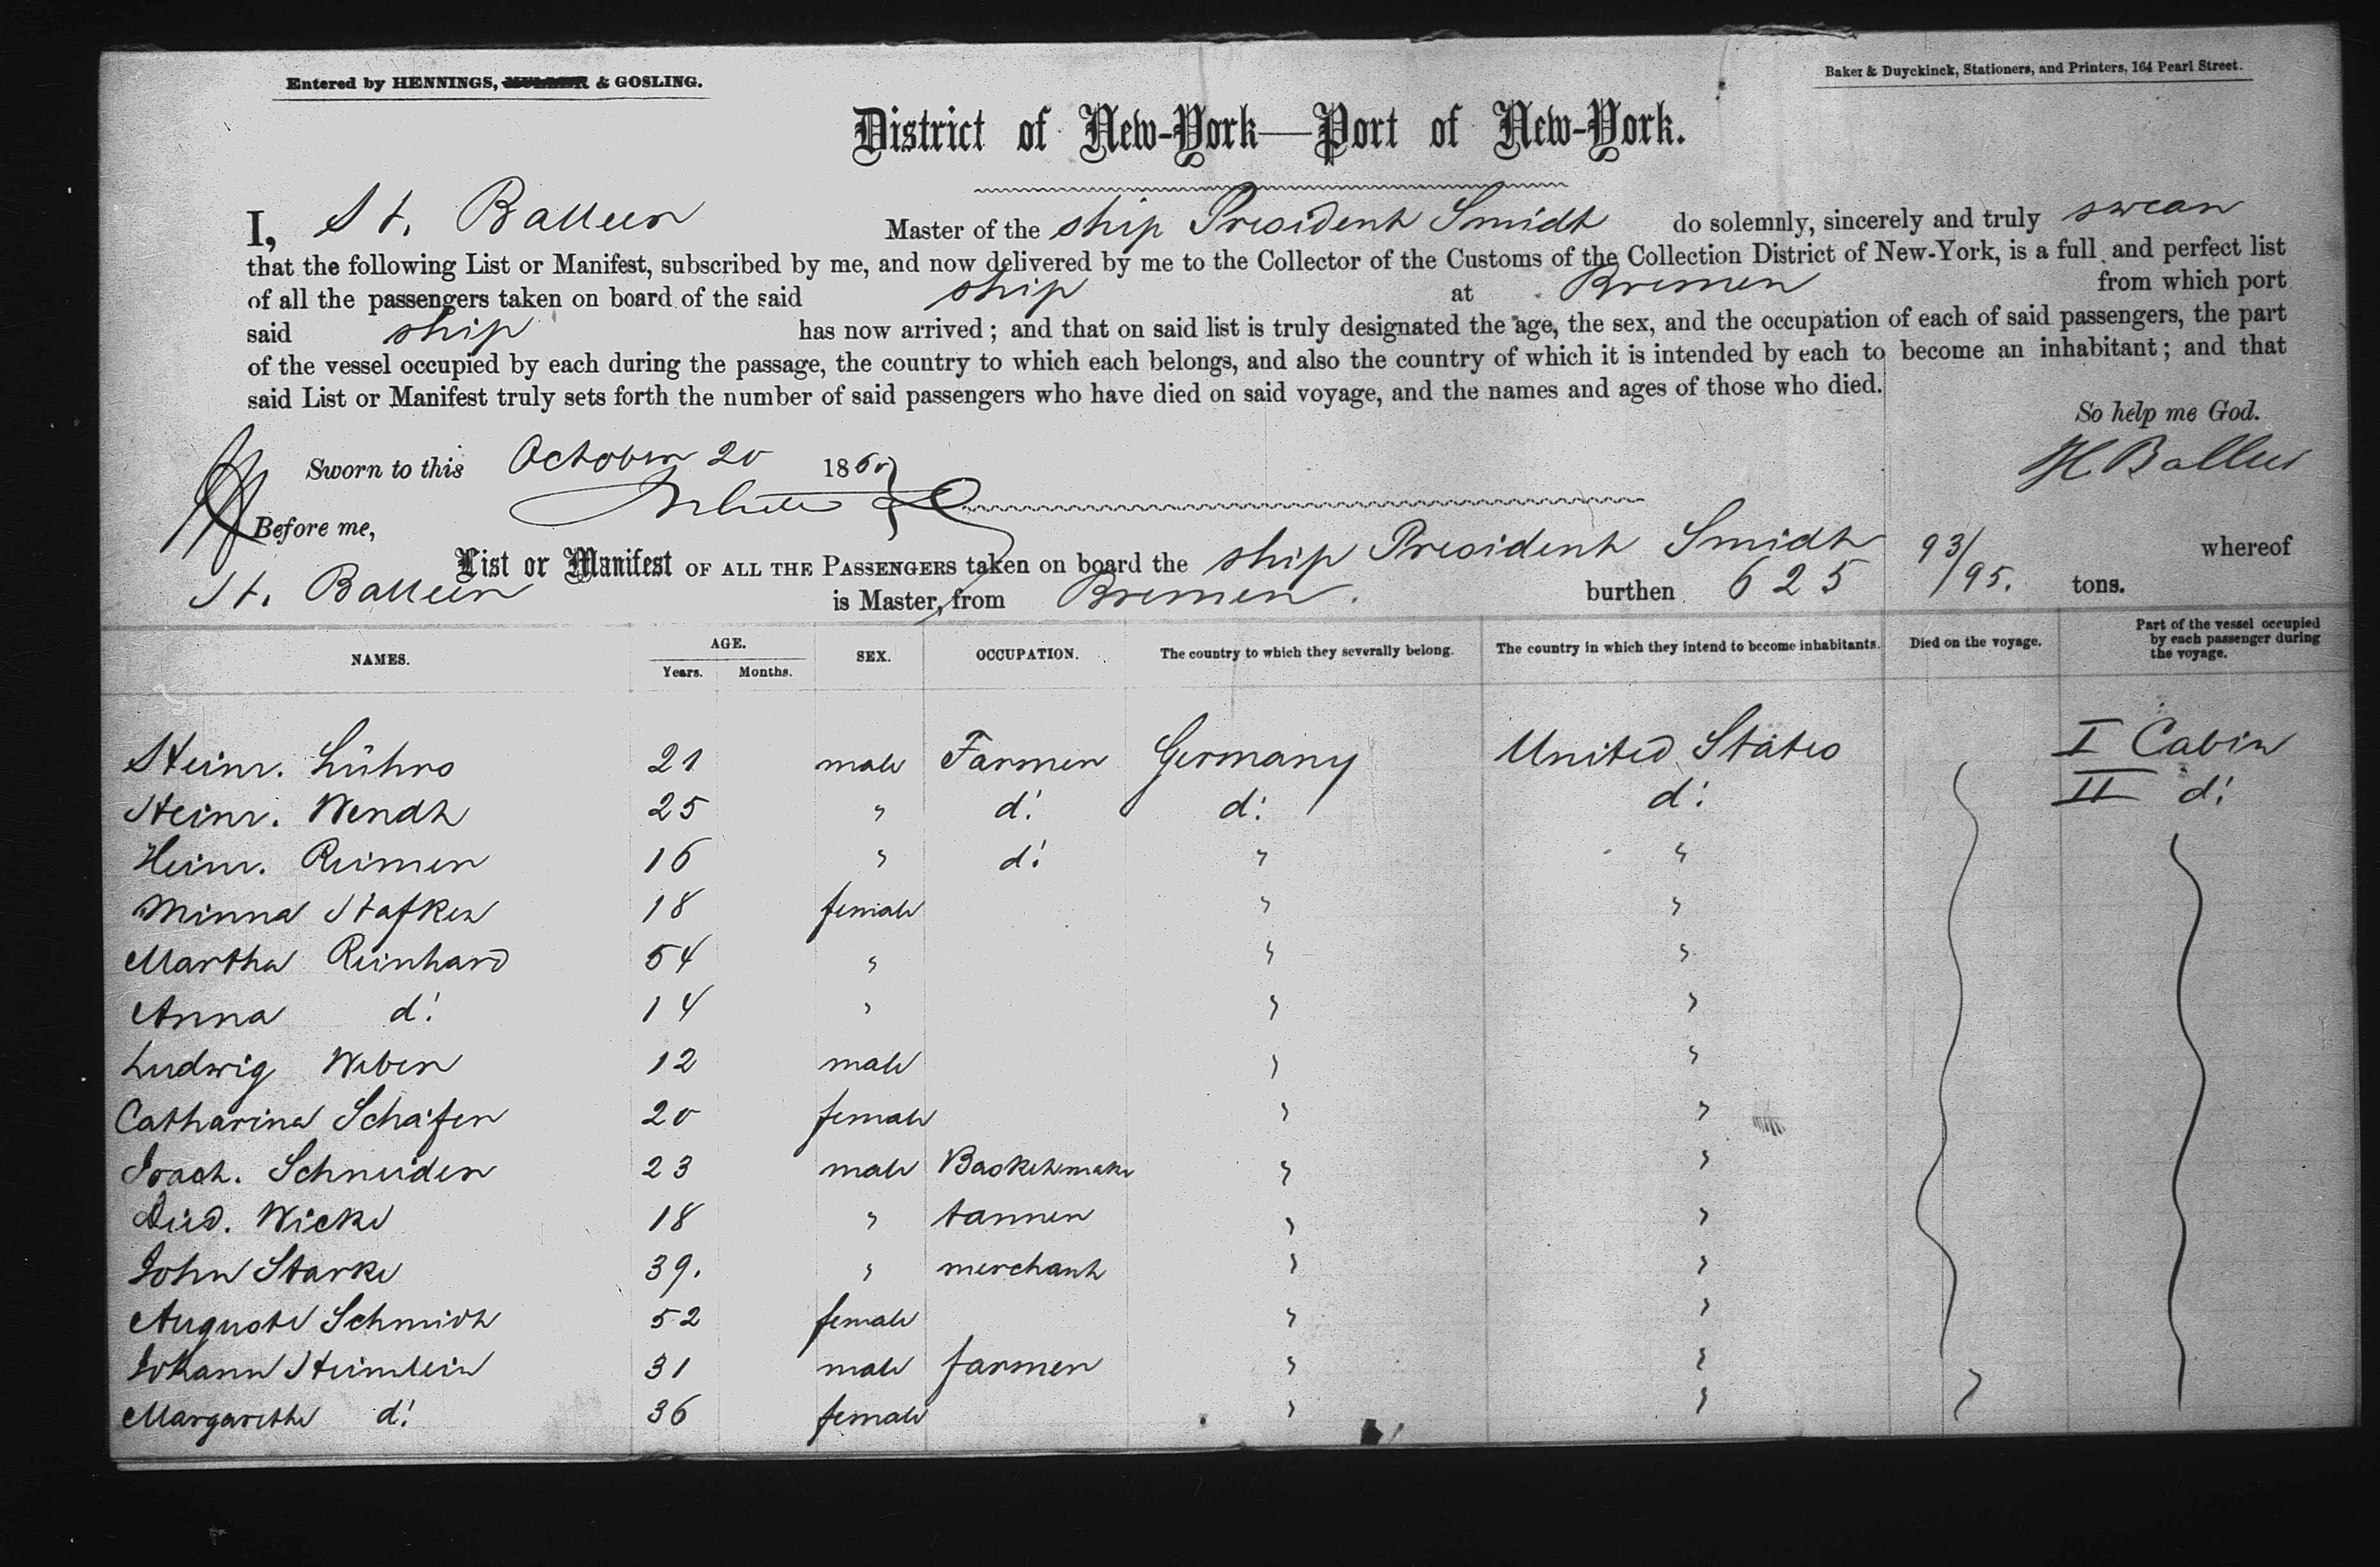 Entered by HENNINGS, & GOSLING.
Baker & Duyckinck, Stationers, and Printers, 164 Pearl Street.
District of New-York—Port of New-York.
I, H. Balleer Master of the ship President Smidt do solemnly, sincerely and truly swear
that the following List or Manifest, subscribed by me, and now delivered by me to the Collector of the Customs of the Collection District of New-York, is a full and perfect list
of all the passengers taken on board of the said ship at Bremen from which port
said ship has now arrived; and that on said list is truly designated the age, the sex, and the occupation of each of said passengers, the part
of the vessel occupied by each during the passage, the country to which each belongs, and also the country of which it is intended by each to become an inhabitant; and that
said List or Manifest truly sets forth the number of said passengers who have died on said voyage, and the names and ages of those who died.
So help me God.
Sworn to this October 20 1860
H Balleer
Before me,
List or Manifest OF ALL THE PASSENGERS taken on board the ship President Smidt whereof
H. Balleer is Master, from Bremen. burthen 625 93/95. tons.
NAMES. AGE. Years. Months. SEX. OCCUPATION. The country to which they severally belong. The country in which they intend to become inhabitants. Died on the voyage. Part of the vessel occupied by each passenger during the voyage.
Heinr. Lührs 21 male Farmer Germany United States I Cabin
Heinr. Wendt 25 " d: d: d: II d:
Heinr. Reimer 16 " d: " "
Minna Stafken 18 female " "
Martha Reinhard 54 " " "
Anna d: 14 " " "
Ludwig Weber 12 male " "
Catharina Schäfer 20 female " "
Joach. Schneider 23 male Basketmaker " "
Died. Wicke 18 " tanner " "
John Starke 39. " merchant " "
Auguste Schmidt 52 female " "
Johann Heimlein 31 male farmer " "
Margarethe d: 36 female " "